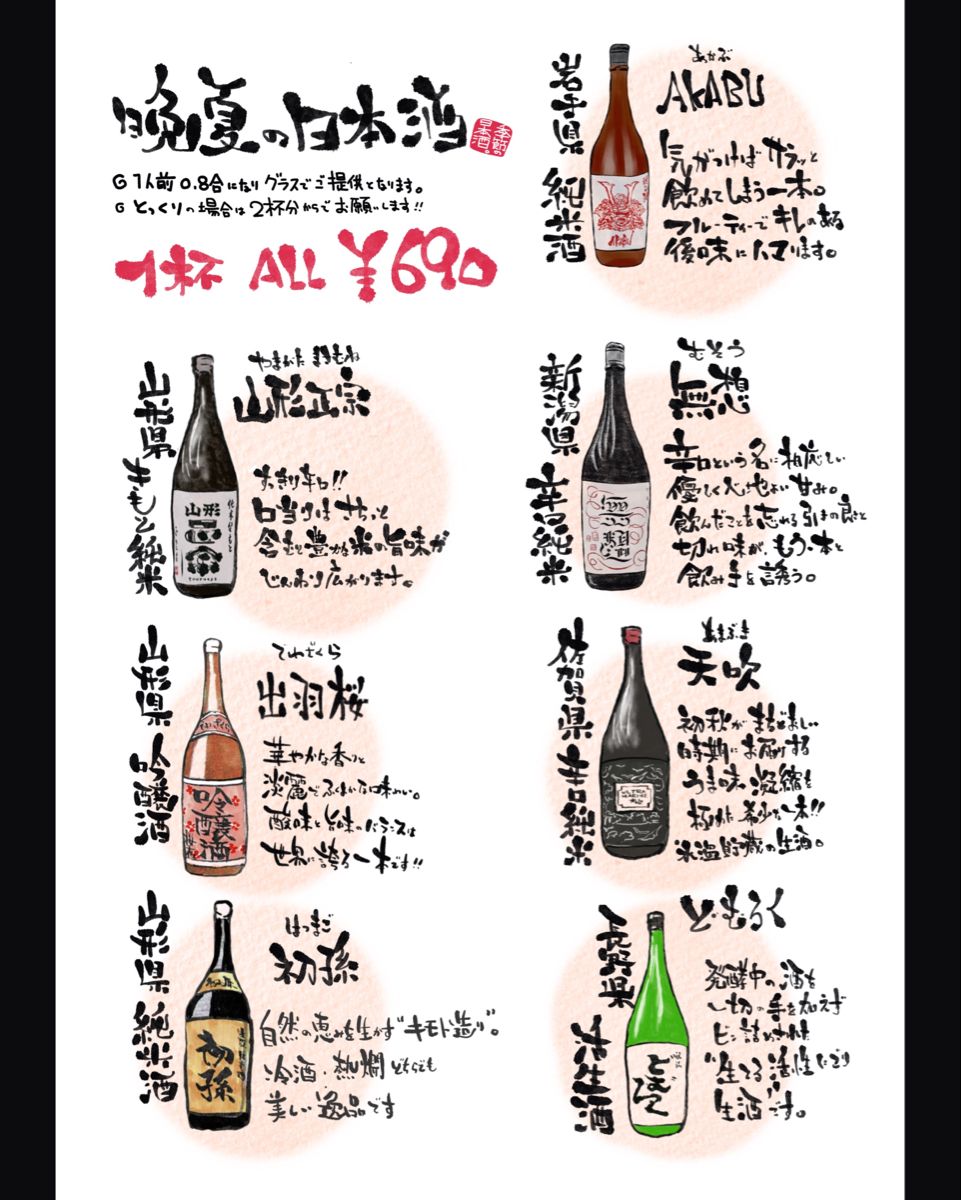 晩夏の日本酒
季節の日本酒。
1人前0.8合になりグラスでご提供となります。
とっくりの場合は2杯分からでお願いします!!
1杯 ALL ¥690
岩手県 純米酒
あかぶ
AKABU
気がつけばサラッと
飲めてしまう一本。
フルーティーでキレのある
後味にハマります。
山形県 きもと純米
やまがたまさむね
山形正宗
すっきり辛口!!
口当りはさらっと
含むと豊かな米の旨味が
じんわり広がります。
山形
正宗
新潟県 辛口純米
むそう
無想
辛口という名に相応しい
優しく心地よい甘み。
飲んだことを忘れる引きの良さと
切れ味が、もう一本と
飲み手を誘う。
山形県 吟醸酒
でわざくら
出羽桜
華やかな香りと
淡麗でふくよかな味わい。
酸味と旨味のバランスは
世界に誇る一本です!!
吟醸酒
佐賀県 辛口純米
あまぶき
天吹
初秋がまちどおしい
時期にお届けする
うま味の凝縮を
極めた希少な一本!!
氷温貯蔵の生酒。
山形県 純米酒
はつまご
初孫
自然の恵みを生かす"キモト造り"。
冷酒・熱燗どちらも
美しい逸品です
初孫
長野県 活性生酒
どむろく
発酵中の酒を
一切の手を加えず
ビン詰めされた
"生てる"活性にごり
生酒"です。